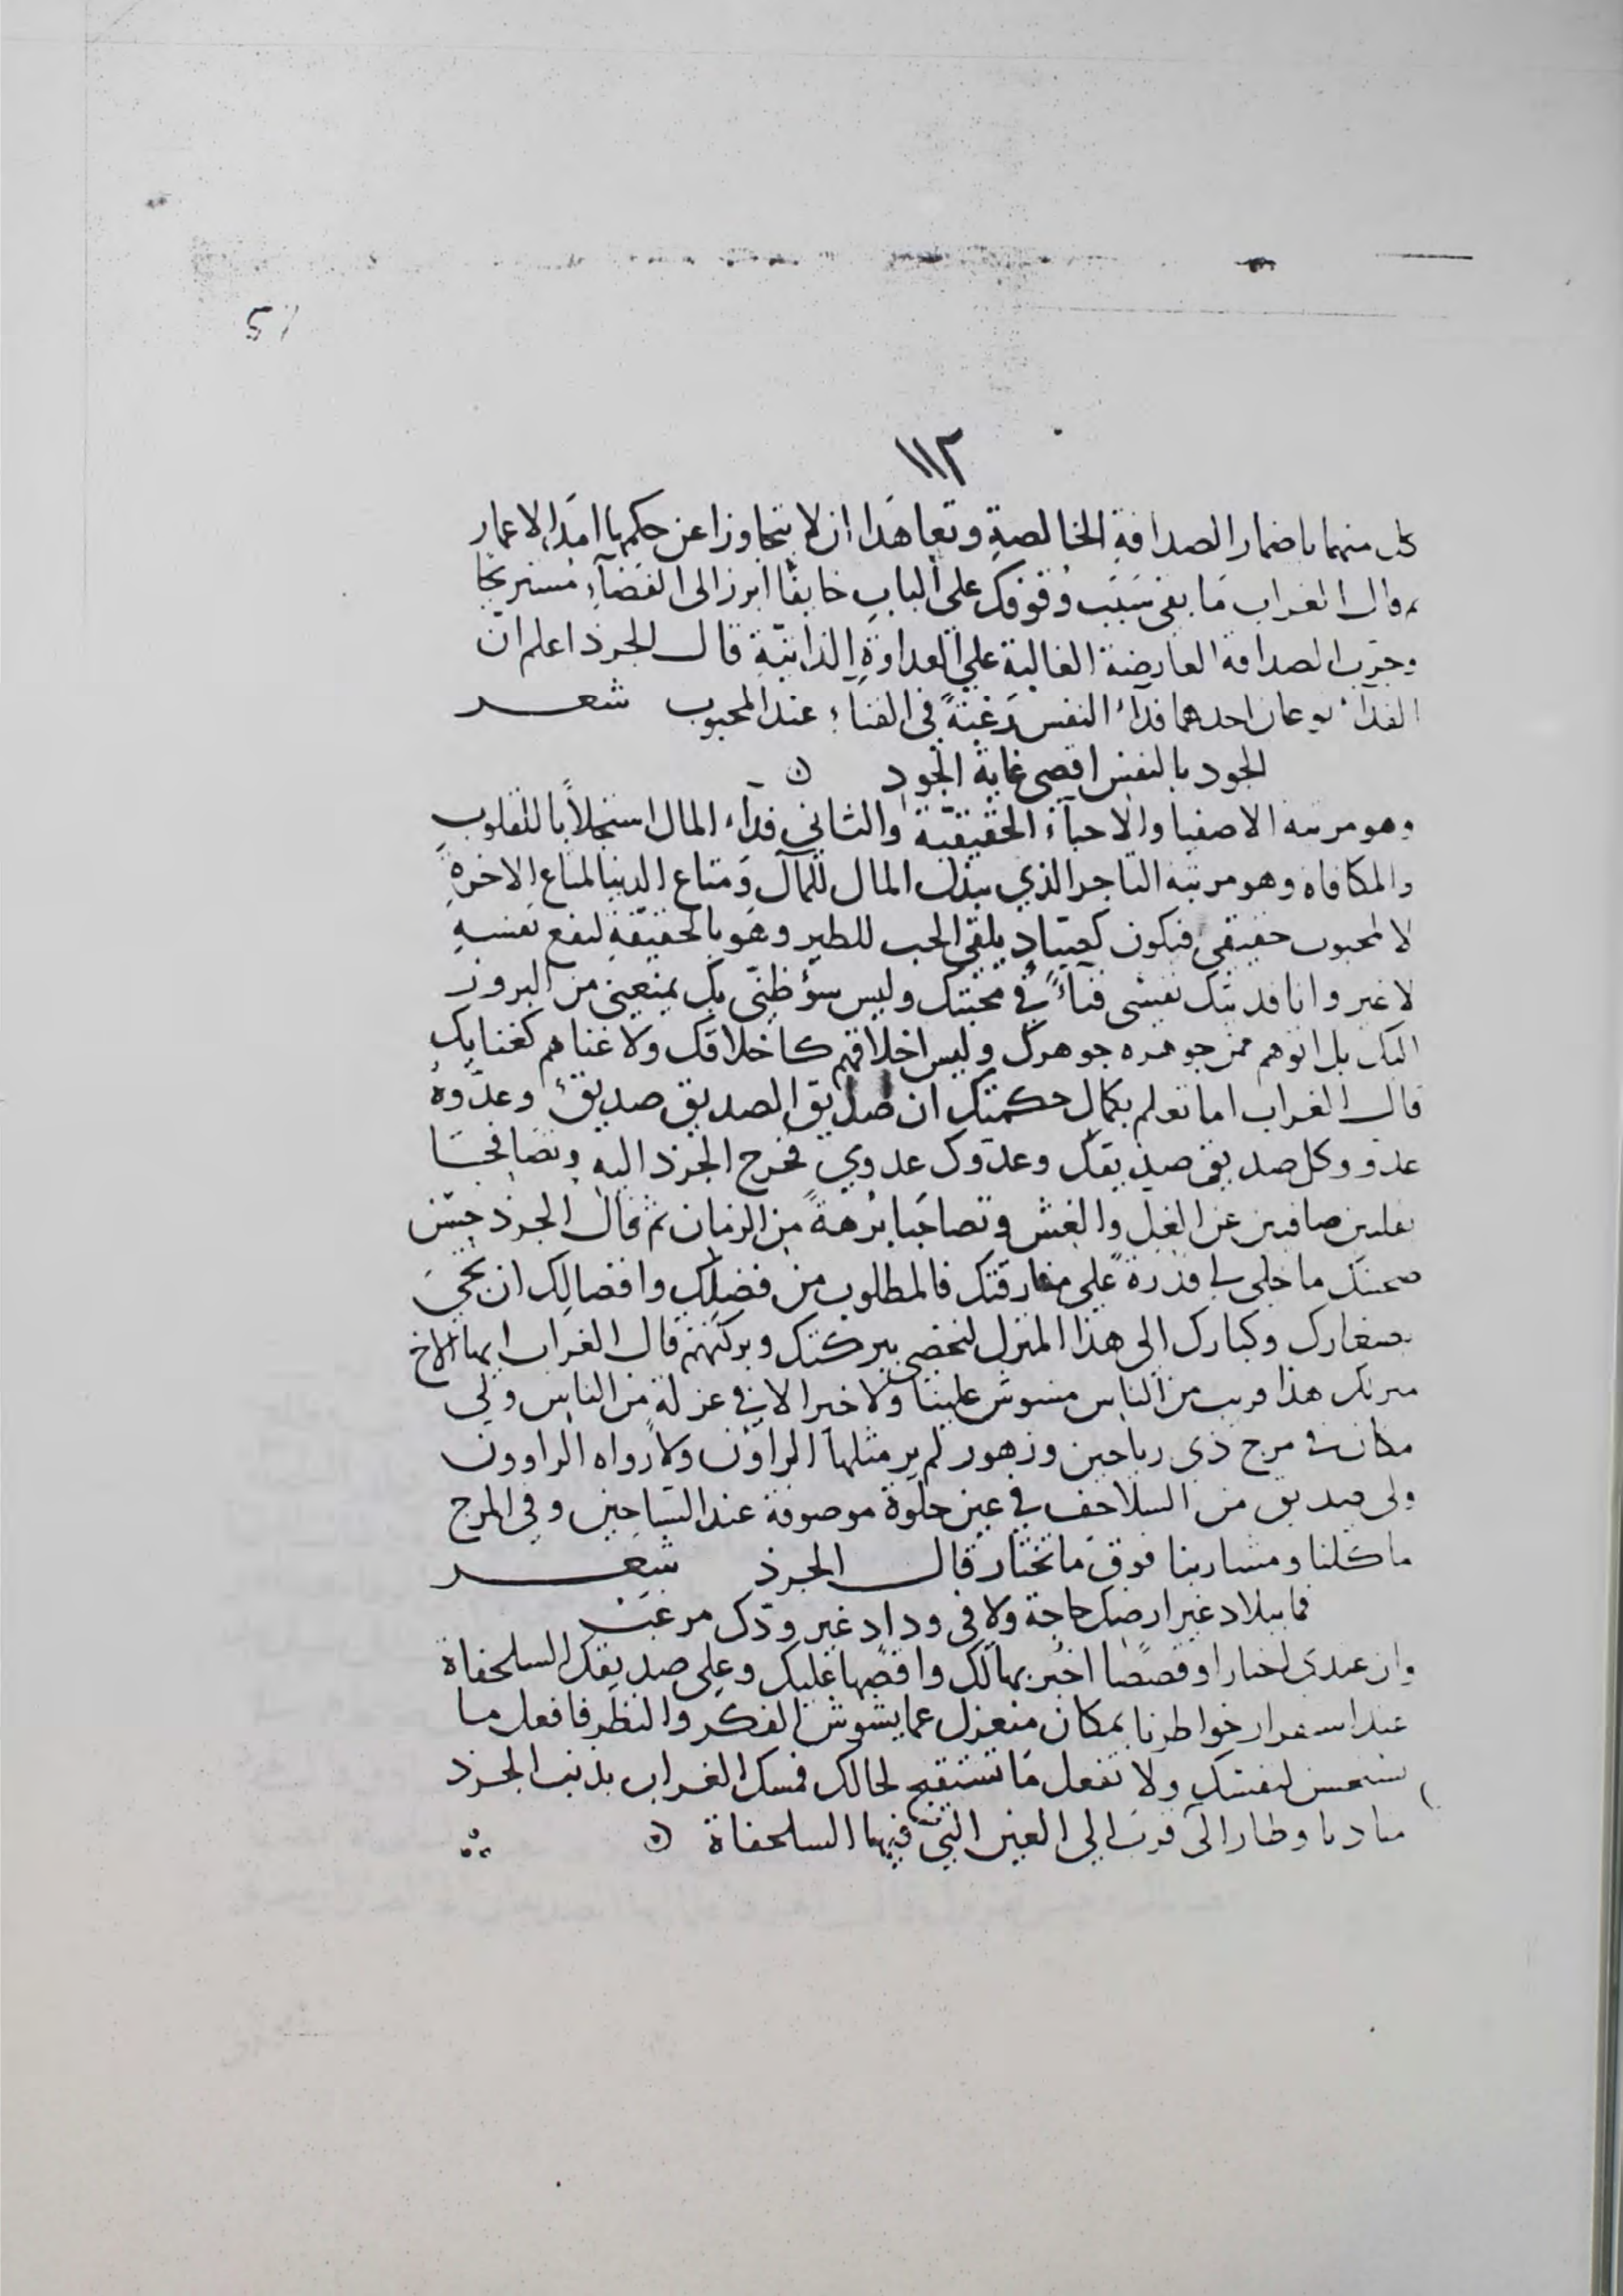 ١١٢
كل منهما باضمار الصداقةِ الخالصةِ وتعاهَدَا ان لا يتجاوزا عن حكمها امَدَ الاعمار
وقال الغراب مَا بقى سَبَب وُقوفك على البابِ خايفًا ابرز الى الفضآءِ مُستريحًا
وجرّب الصداقة العارضة الغالبة على العداوةِ الذاتيّةِ قال الجرذ اعلم انّ
الفدآء نوعان احدهما فدآء النفس رَغبَةً في الفنآءِ عند المحبوب شعر
الجود بالنفس اقصى غاية الجودِ
وهو مرتبه الاصفيا والاحبآء الحقيقيّة والثاني فدآء المال استجلابًا للقلوبِ
والمكافاة وهو مرتبه التاجر الذي يبذل المال للمآل وَمتاع الدنيا لمتاع الاخرةِ
لا لمحبوب حقيقى فيكون كصيّادٍ يلقي الحب للطير وهو بالحقيقةِ لنفع نفسهِ
لا غير وانا فديتك نفسى فنآءً في محبّتك وليس سوء ظنّي بك يمنعني من البروز
اليك بل اتوهم ممن جوهره جوهرك وليس اخلاقهم كاخلاقك ولا غناهم كغنايك
قال الغراب اما تعلم بكمال حكمتك ان صديق الصديق صديقٌ وعدُوّهُ
عدو وكل صديق صديقك وعدوّك عدوي فخرج الجرذ اليه وتصافحَا
بقلبين صافيين عن الغل والغش وتصاحَبا بُرهةً من الزمان ثم قال الجرذ حسن
صحبتك ما خلى لى قدرة على مفارقتك فالمطلوب من فضلك وافضالِك ان تجيَ
بصغارك وكبارك الى هذا المنزل لنحضى ببركتك وبركتهم قال الغراب ايها الاخ
منزلك هذا قريب من الناس مشوش علينا ولا خير الا في عزلةٍ من الناس ولي
مكان في مرج ذى رياحين وزهور لم ير مثلها الراؤن ولا رواه الراوون
ولى صديق من السلاحف في عين حلوة موصوفة عند السّاحين وفي المرج
ماكلنا ومشاربنا فوق ما تختار قال الجرذ شعر
فما ببلاد غير ارضك حاجة ولا في وداد غير ودّك مرغب
وان عندى اخبارا وقصصًا اخبر بها لك واقصّها عليك وعلى صديقك السلحفاة
عند استقرار خواطرنا بمكان منعزل عما يشوش الفكر والنظر فافعل ما
تستحسن لنفسك ولا تفعل مَا تستقبح لحالك فمسك الغراب بذنب الجرذ
وطار الى قرب الى العين التي فيها السلحفاة